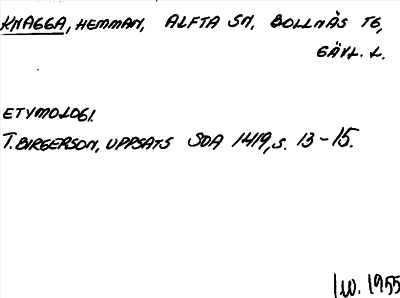 KNAGGA, HEMMAN, ALFTA SN, BOLLNÄS TG,
GÄVL. L.
ETYMOLOGI.
T. BIRGERSON, UPPSATS SOA 1419, S. 13-15.
1955